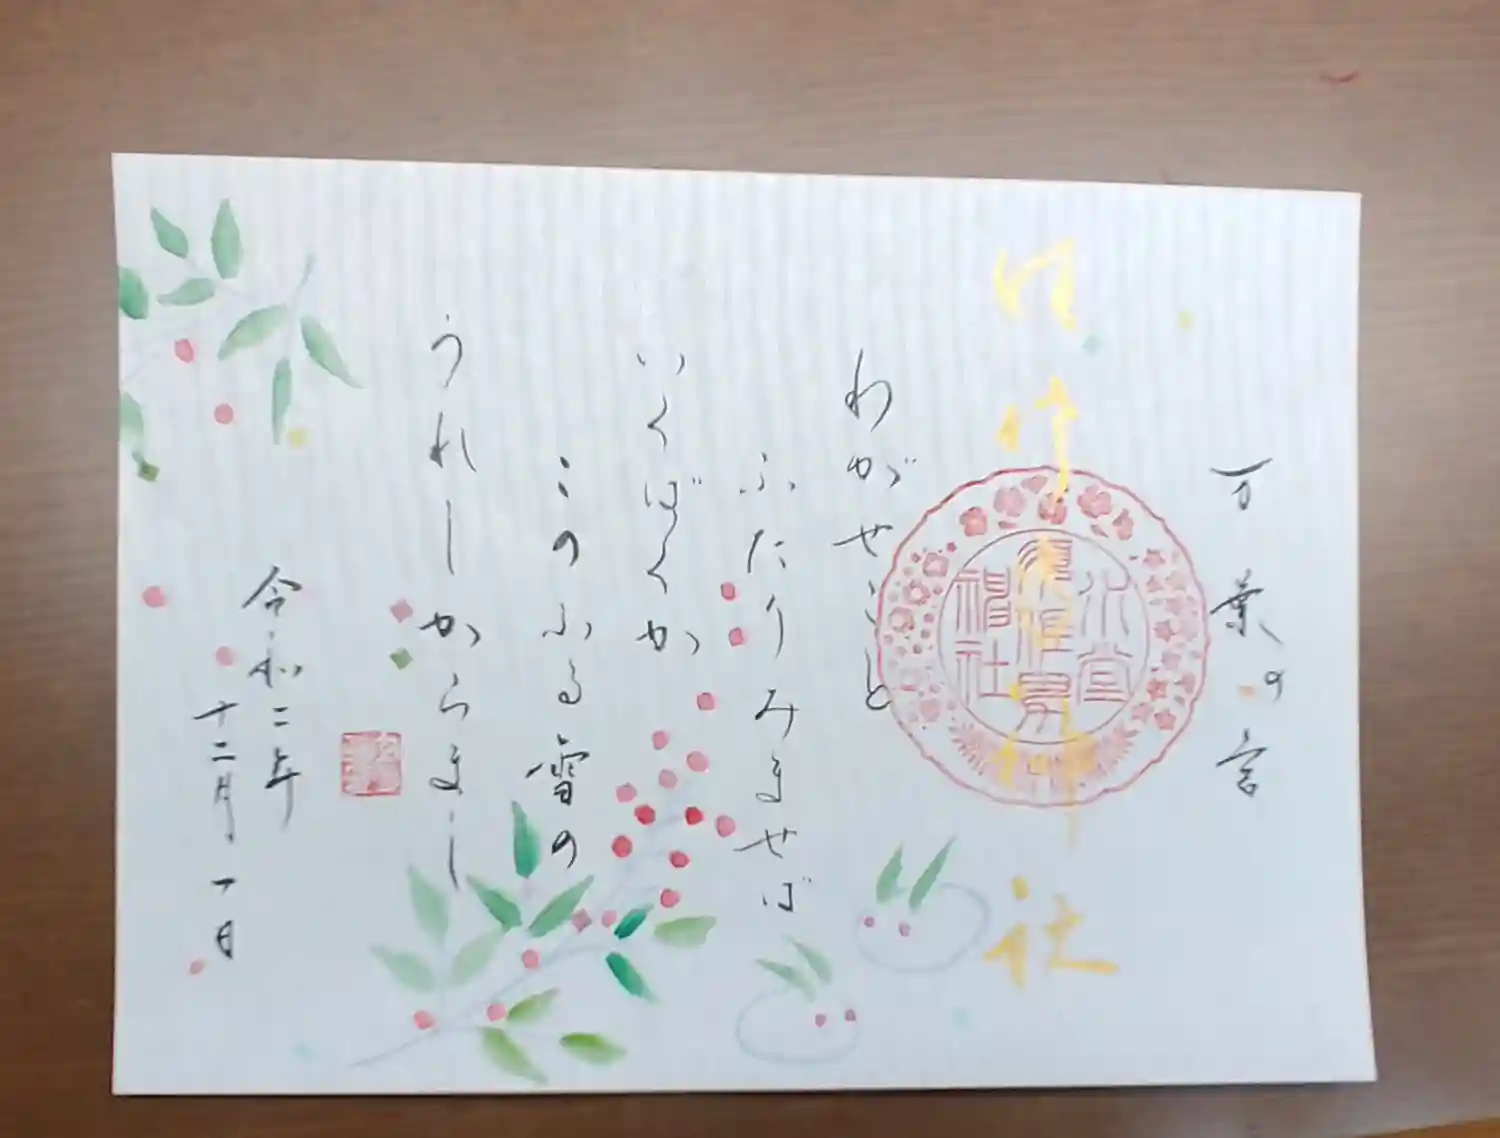 万葉の言
神社
わがせこと
ふたりみませば
いくばくか
このふる雪の
うれしからまし
令和二年
十二月一日